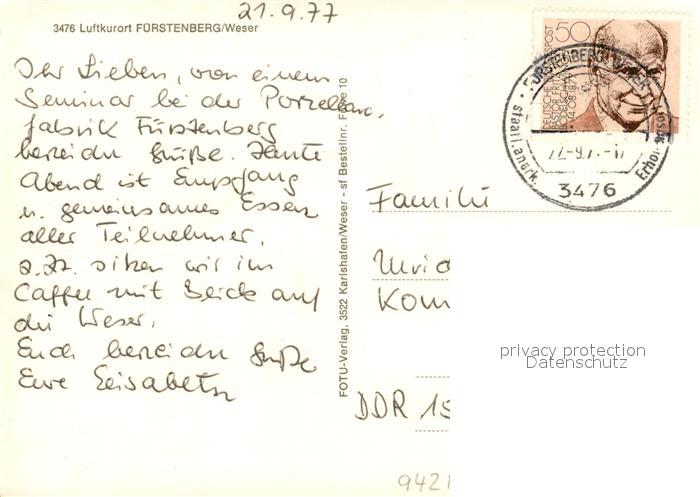 21.9.77
3476 Luftkurort FÜRSTENBERG/Weser
Ihr Lieben, von einem
Seminar bei der Porzellan-
fabrik Fürstenberg
herzliche Grüße. Heute
Abend ist Empfang
u. gemeinsames Essen
aller Teilnehmer,
z.Zt. sitzen wir im
Caffee mit Blick auf
die Weser.
Euch herzliche Grüße
Eure Elisabeth
FOTU-Verlag, 3522 Karlshafen/Weser - sf Bestellnr. F 10
50
DEUTSCHE BUNDESPOST
FÜRSTENBERG, WESER
staatl. anerk.
Erho
3476
Familie
Kom
DDR 15
9421
privacy protection
Datenschutz